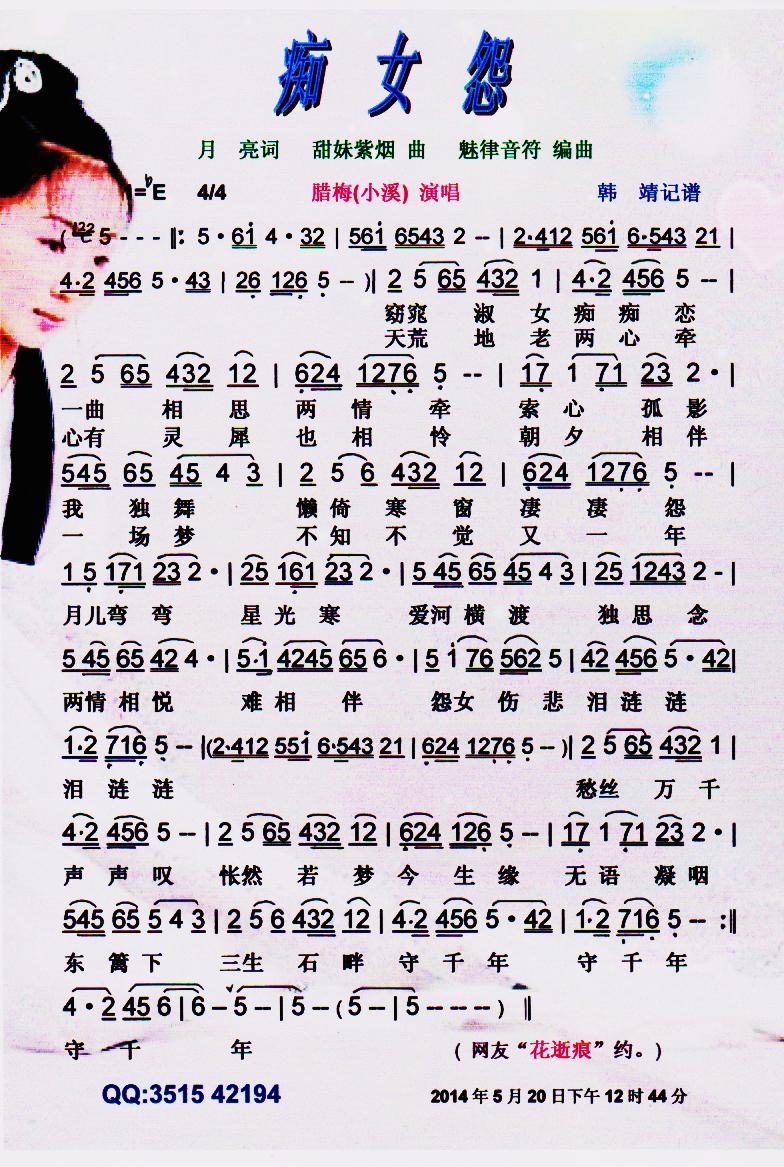 痴 女 怨
月 亮词 甜妹紫烟 曲 魅律音符 编曲
1=♭E 4/4 腊梅(小溪) 演唱 韩 靖记谱
( 5 - - - ‖: 5 · 61 4 · 32 | 561 6543 2 -- | 2·412 561 6·543 21 |
4·2 456 5 · 43 | 26 126 5 -- )| 2 5 65 432 1 | 4·2 456 5 -- |
窈窕 淑 女 痴 痴 恋
天荒 地 老 两 心 牵
2 5 65 432 12 | 624 1276 5 -- | 17 1 71 23 2 · |
一曲 相 思 两 情 牵 索 心 孤 影
心有 灵 犀 也 相 怜 朝 夕 相 伴
545 65 45 4 3 | 2 5 6 432 12 | 624 1276 5 -- |
我 独 舞 懒 倚 寒 窗 凄 凄 怨
一 场 梦 不 知 不 觉 又 一 年
1 5 171 23 2 · | 25 161 23 2 · | 5 45 65 45 4 3 | 25 1243 2 - |
月儿弯 弯 星 光 寒 爱河 横 渡 独 思 念
5 45 65 42 4 · | 5·1 4245 65 6 · | 5 1 76 562 5 | 42 456 5 · 42|
两情 相 悦 难 相 伴 怨女 伤 悲 泪 涟 涟
1·2 716 5 -- |(2·412 551 6·543 21 | 624 1276 5 -- )| 2 5 65 432 1 |
泪 涟 涟 愁丝 万 千
4·2 456 5 -- | 2 5 65 432 12 | 624 126 5 -- | 17 1 71 23 2 · |
声 声 叹 怅然 若 梦 今 生 缘 无 语 凝 咽
545 65 5 4 3 | 2 5 6 432 12 | 4·2 456 5 · 42 | 1·2 716 5 -- :‖
东 篱 下 三生 石 畔 守 千 年 守 千 年
4 · 2 45 6 | 6 – 5 -- | 5 -- ( 5 -- | 5 --- -- ) ‖
守 千 年 ( 网友“花逝痕”约。)
QQ:3515 42194 2014 年 5 月 20 日下午 12 时 44 分